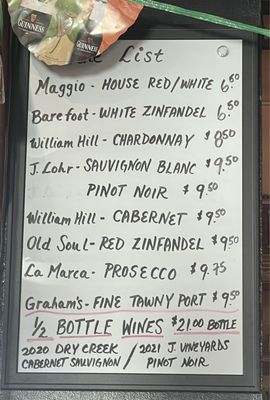 GUINNESS
GUINNESS
List
Maggio - HOUSE RED/WHITE 6.50
Barefoot - WHITE ZINFANDEL 6.50
William Hill - CHARDONNAY $8.50
J. Lohr - SAUVIGNON BLANC $9.50
PINOT NOIR $9.50
William Hill - CABERNET $9.50
Old Soul - RED ZINFANDEL $9.50
La Marca - PROSECCO $9.75
Graham's - FINE TAWNY PORT $9.50
1/2 BOTTLE WINES $21.00 BOTTLE
2020 DRY CREEK / 2021 J. VINEYARDS
CABERNET SAUVIGNON / PINOT NOIR